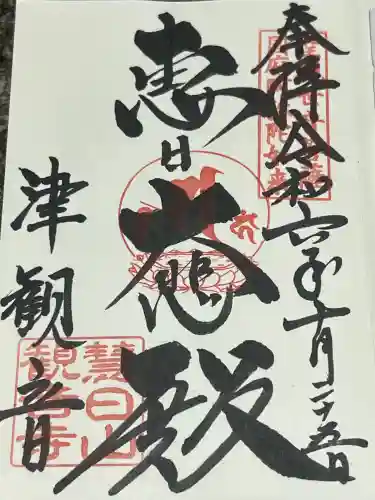 奉拝 令和六年十月二十五日
恵日
大悲殿
津観音
慧日山
観音寺